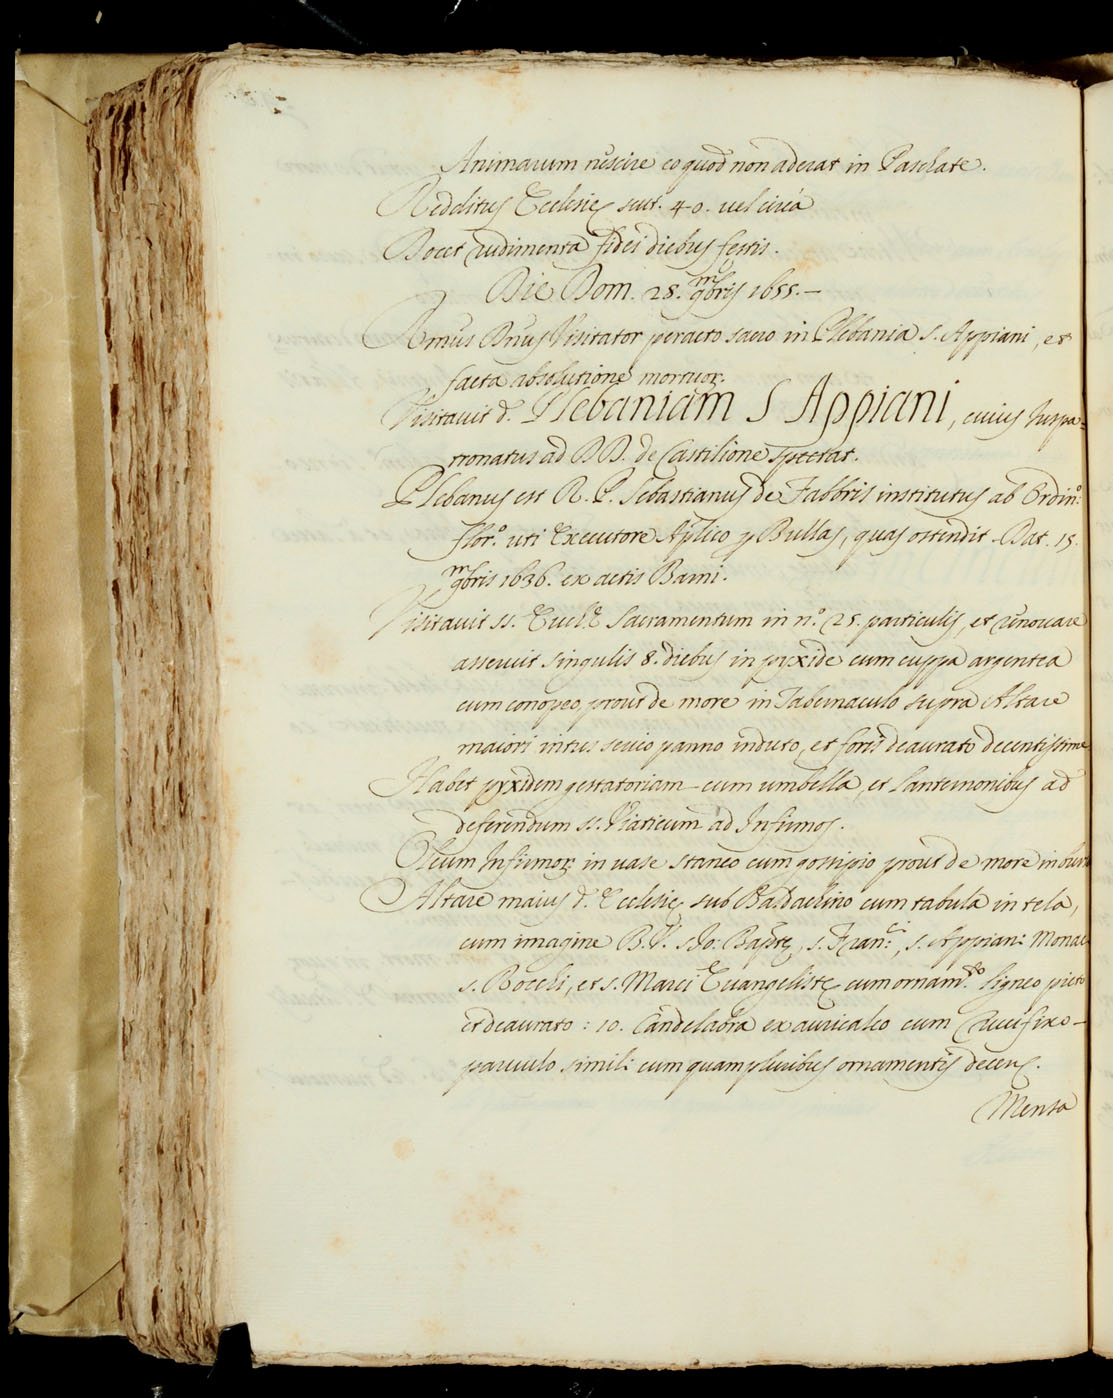 Animarum nescire eo quod non aderat in Paschate.
Redditus Ecclesię scut. 40. uel circa
Docet rudimenta fidei diebus festis.
Die Dom. 28. 9mbris 1655.
Rmus Dnus Visitator peracto sacro in Plebania S. Appiani, et
facta absolutione mortuor.
Visitauit d. Plebaniam S Appiani, cuius Juspa-
tronatus ad DD. de Castilione spectat.
Plebanus est R. P. Sebastianus de Fabbris institutus ab Ordino:
Floro. uti Executore Aplico p Bullas, quas ostendit Dat. 15.
9mbris 1636. ex actis Barni.
Visitauit ss. Euche Sacramentum in no. 25. particulis, et renouare
asseruit singulis 8. diebus in pyxide cum cuppa argentea
cum conopeo, prout de more in Tabernaculo supra Altare
maiori intus serico panno induto, et foris deaurato decentissime
Habet pyxidem gestatoriam cum umbella, et Lanternonibus ad
deferendum ss. Viaticum ad Infirmos.
Oleum Infirmor. in uase staneo cum gossipio prout de more in
Altare maius d. Ecclesię sub Baldachino cum tabula in tela,
cum imagine B.V. s. Jo: Baptę, s. Franci:, s. Appiani Monac
s. Rocchi, et s. Marci Euangelistę cum ornamto. ligneo picto
et deaurato: 10. Candelabra ex auricalco cum Crucifixo
paruulo simili cum quampluribus ornamentis decens.
Mensa